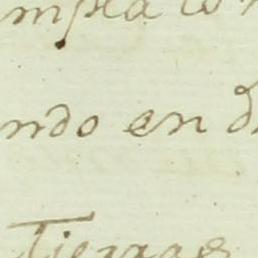 mpla lo
ndo en d
Tierras